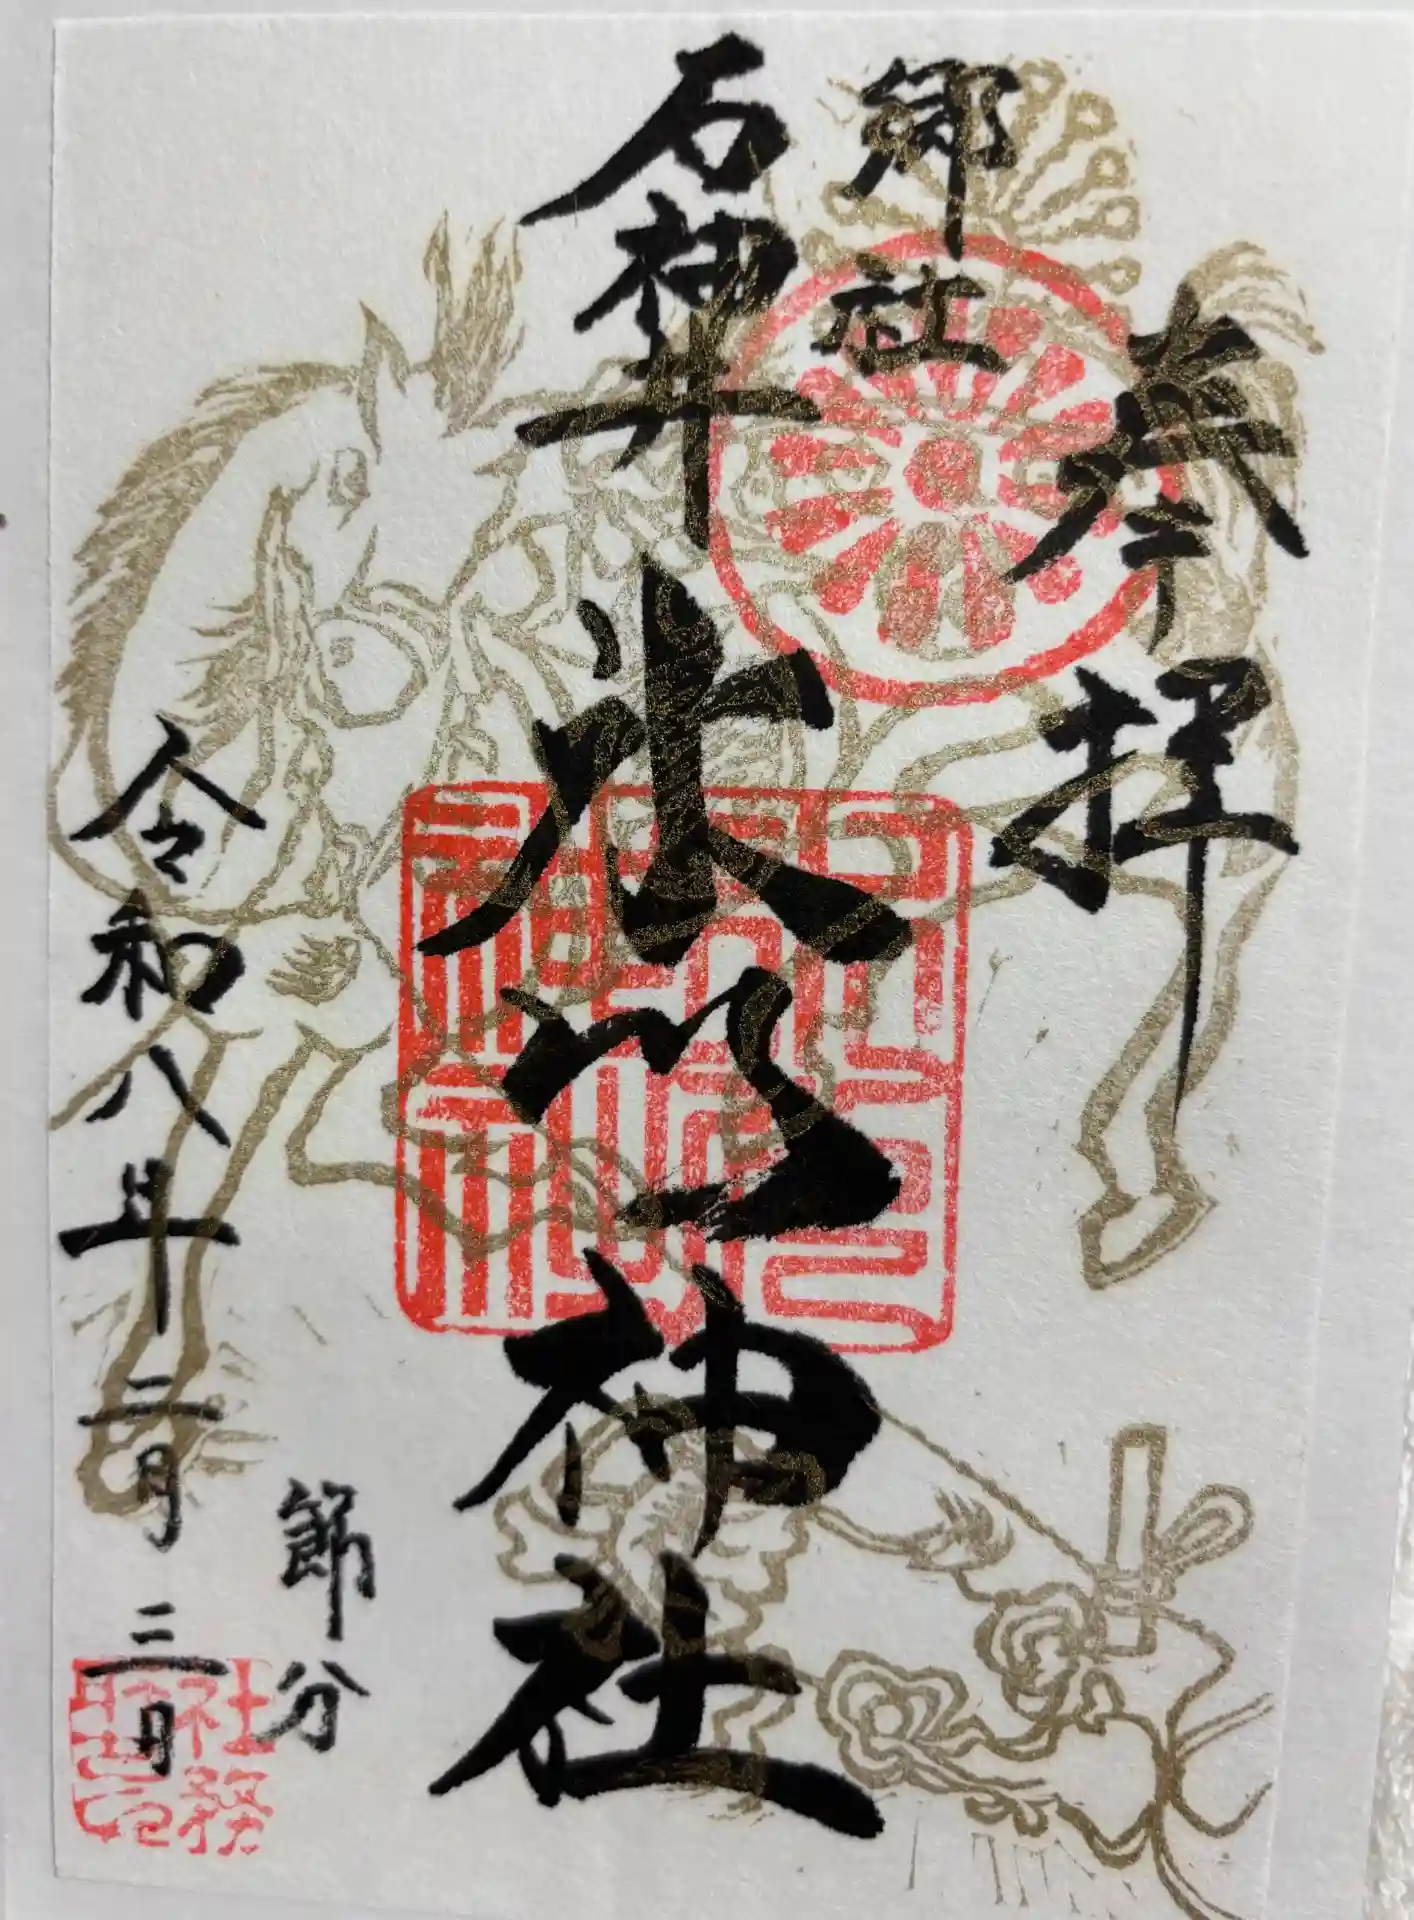 奉拝
郷社
石神井
氷川神社
節分
令和八年二月三日
社務